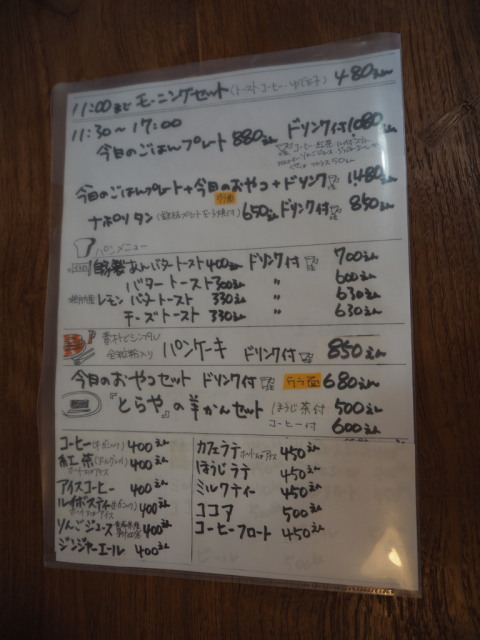 11:00まで モーニングセット(トースト コーヒー ゆで玉子) 480えん
11:30〜17:00
今日のごはんプレート 880えん ドリンク付 1080えん
今日のごはんプレート+今日のおやつ+ドリンク 1,480えん
ナポリタン 650えん ドリンク付 850えん
パンメニュー
自家製あんバタートースト 400えん ドリンク付 700えん
バタートースト 300えん 〃 600えん
レモンバタートースト 330えん 〃 630えん
チーズトースト 330えん 〃 630えん
昔ながらシンプル
全粒粉入り パンケーキ ドリンク付 850えん
今日のおやつセット ドリンク付 680えん
『とらや』の羊かんセット ほうじ茶付 500えん
コーヒー付 600えん
コーヒー 400えん
紅茶 400えん
ホット or アイス
アイスコーヒー 400えん
ルイボスティ 400えん
ホット or アイス
りんごジュース 400えん
ジンジャーエール 400えん
カフェラテ ホット or アイス 450えん
ほうじラテ 450えん
ミルクティー 450えん
ココア 500えん
コーヒーフロート 450えん